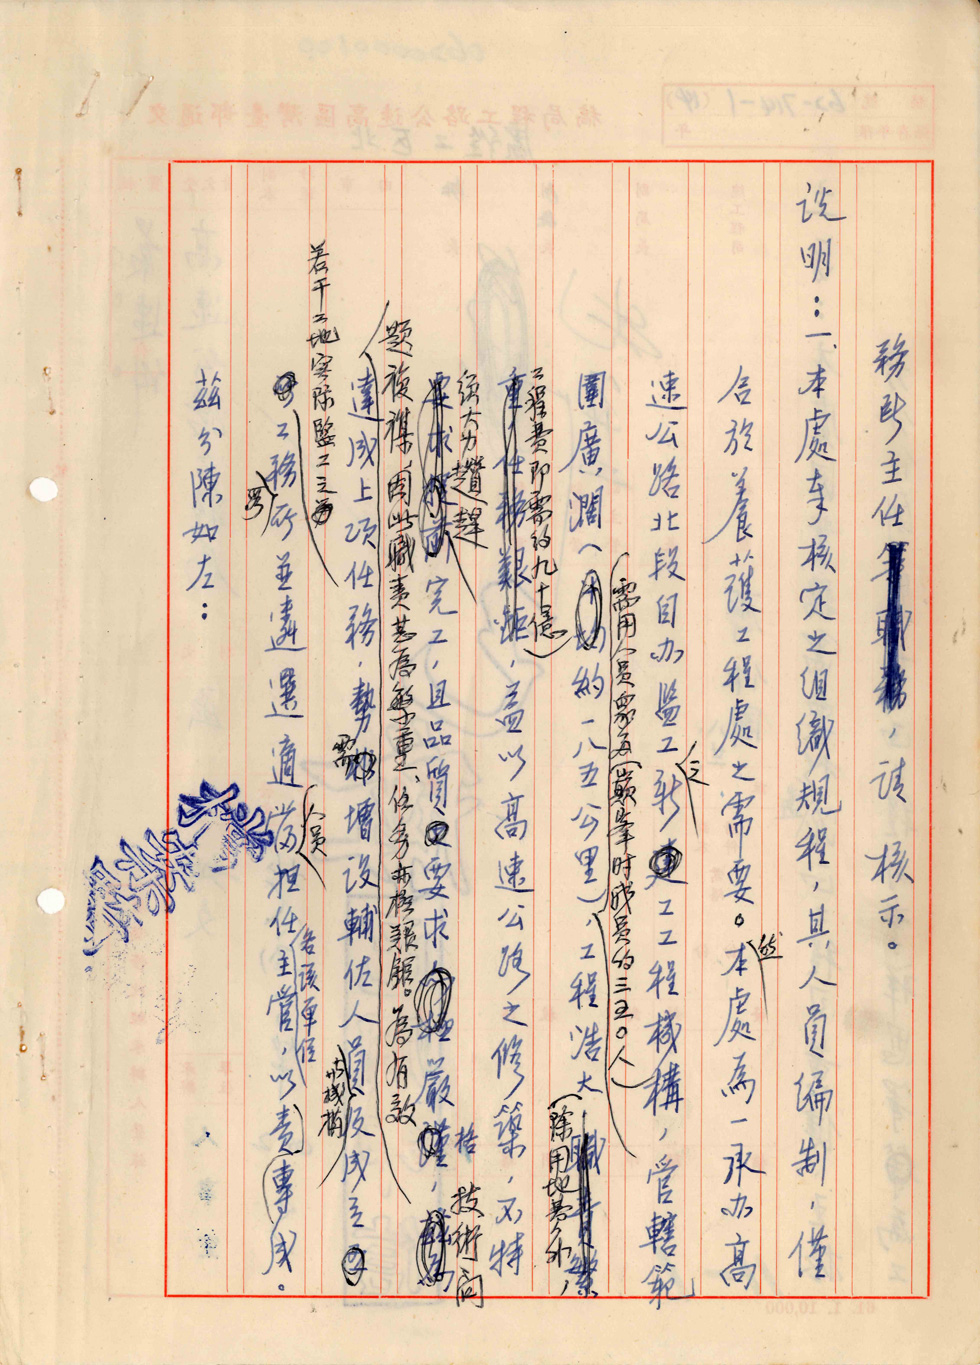 務所主任等職務，請核示。
說明：一、本處奉核定之組織規程，其人員編制，僅
合於養護工程處之需要。本處為一承办高
然
速公路北段自办監工新建工工程機構，管轄範
之
（需用人員眾多（巔峯時職員約三五〇人）
圍廣濶（約一八五公里），工程浩大職責繁
（除用地費外，
工程費即需約九十億）
重，任務艱鉅，蓋以高速公路之修築，不特
須大力趲趕
要求提前完工，且品質要求極嚴謹，
格
技術問
題複雜因此職責甚為繁重、任务亦極艱鉅。為有效
達成上項任務，勢增設輔佐人員及成立
需
若干工地實際監工之
以職稱
工務所並遴選適當担任主管，以責專成。
人員
各該單位
茲分陳如左：
61. 1. 10,000